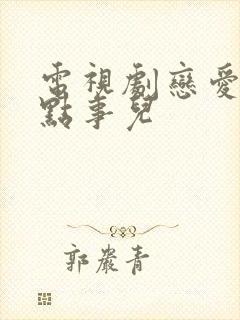 電視劇戀愛
點事兒
郭嚴青